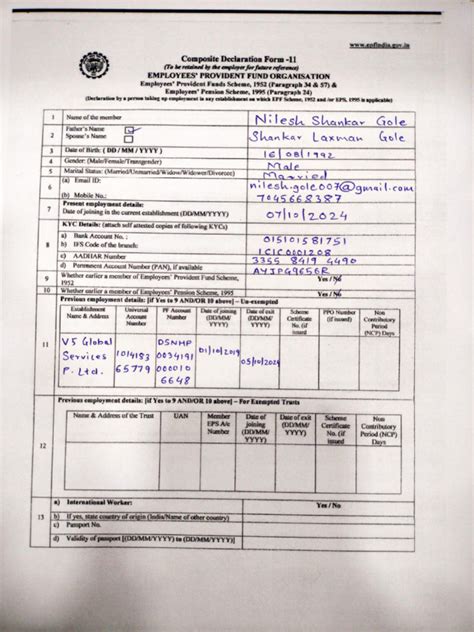 www.epfindia.gov.in
Composite Declaration Form -11
(To be retained by the employer for future reference)
EMPLOYEES' PROVIDENT FUND ORGANISATION
Employees' Provident Funds Scheme, 1952 (Paragraph 34 & 57) &
Employees' Pension Scheme, 1995 (Paragraph 24)
(Declaration by a person taking up employment in any establishment on which EPF Scheme, 1952 and /or EPS, 1995 is applicable)
1 Name of the member Nilesh Shankar Gole
2 Father's Name ✓ Shankar Laxman Gole
Spouse's Name
3 Date of Birth: (DD / MM / YYYY) 16/08/1992
4 Gender: (Male/Female/Transgender) Male
5 Marital Status: (Married/Unmarried/Widow/Widower/Divorcee) Married
6 (a) Email ID: nilesh.gole007@gmail.com
(b) Mobile No.: 7045668387
7 Present employment details:
Date of joining in the current establishment (DD/MM/YYYY) 07/10/2024
8 KYC Details: (attach self attested copies of following KYCs)
a) Bank Account No. : 015101581751
b) IFS Code of the branch: ICIC0001208
c) AADHAR Number 3355 8419 4490
d) Permanent Account Number (PAN), if available AYJPG9656R
9 Whether earlier a member of Employees' Provident Fund Scheme, 1952 Yes / No
10 Whether earlier a member of Employees' Pension Scheme, 1995 Yes / No
11 Previous employment details: [if Yes to 9 AND/OR 10 above] – Un-exempted
Establishment Name & Address
Universal Account Number
PF Account Number
Date of joining (DD/MM/YYYY)
Date of exit (DD/MM/YYYY)
Scheme Certificate No. (if issued)
PPO Number (if issued)
Non Contributory Period (NCP) Days
V5 Global Services P. Ltd.
1014183 65779
DSNHP 0034191 000010 6648
01/10/2019
05/10/2024
12 Previous employment details: [if Yes to 9 AND/OR 10 above] – For Exempted Trusts
Name & Address of the Trust
UAN
Member EPS A/c Number
Date of joining (DD/MM/YYYY)
Date of exit (DD/MM/YYYY)
Scheme Certificate No. (if issued
Non Contributory Period (NCP) Days
13 a) International Worker: Yes / No
b) If yes, state country of origin (India/Name of other country)
c) Passport No.
d) Validity of passport [(DD/MM/YYYY) to (DD/MM/YYYY)]